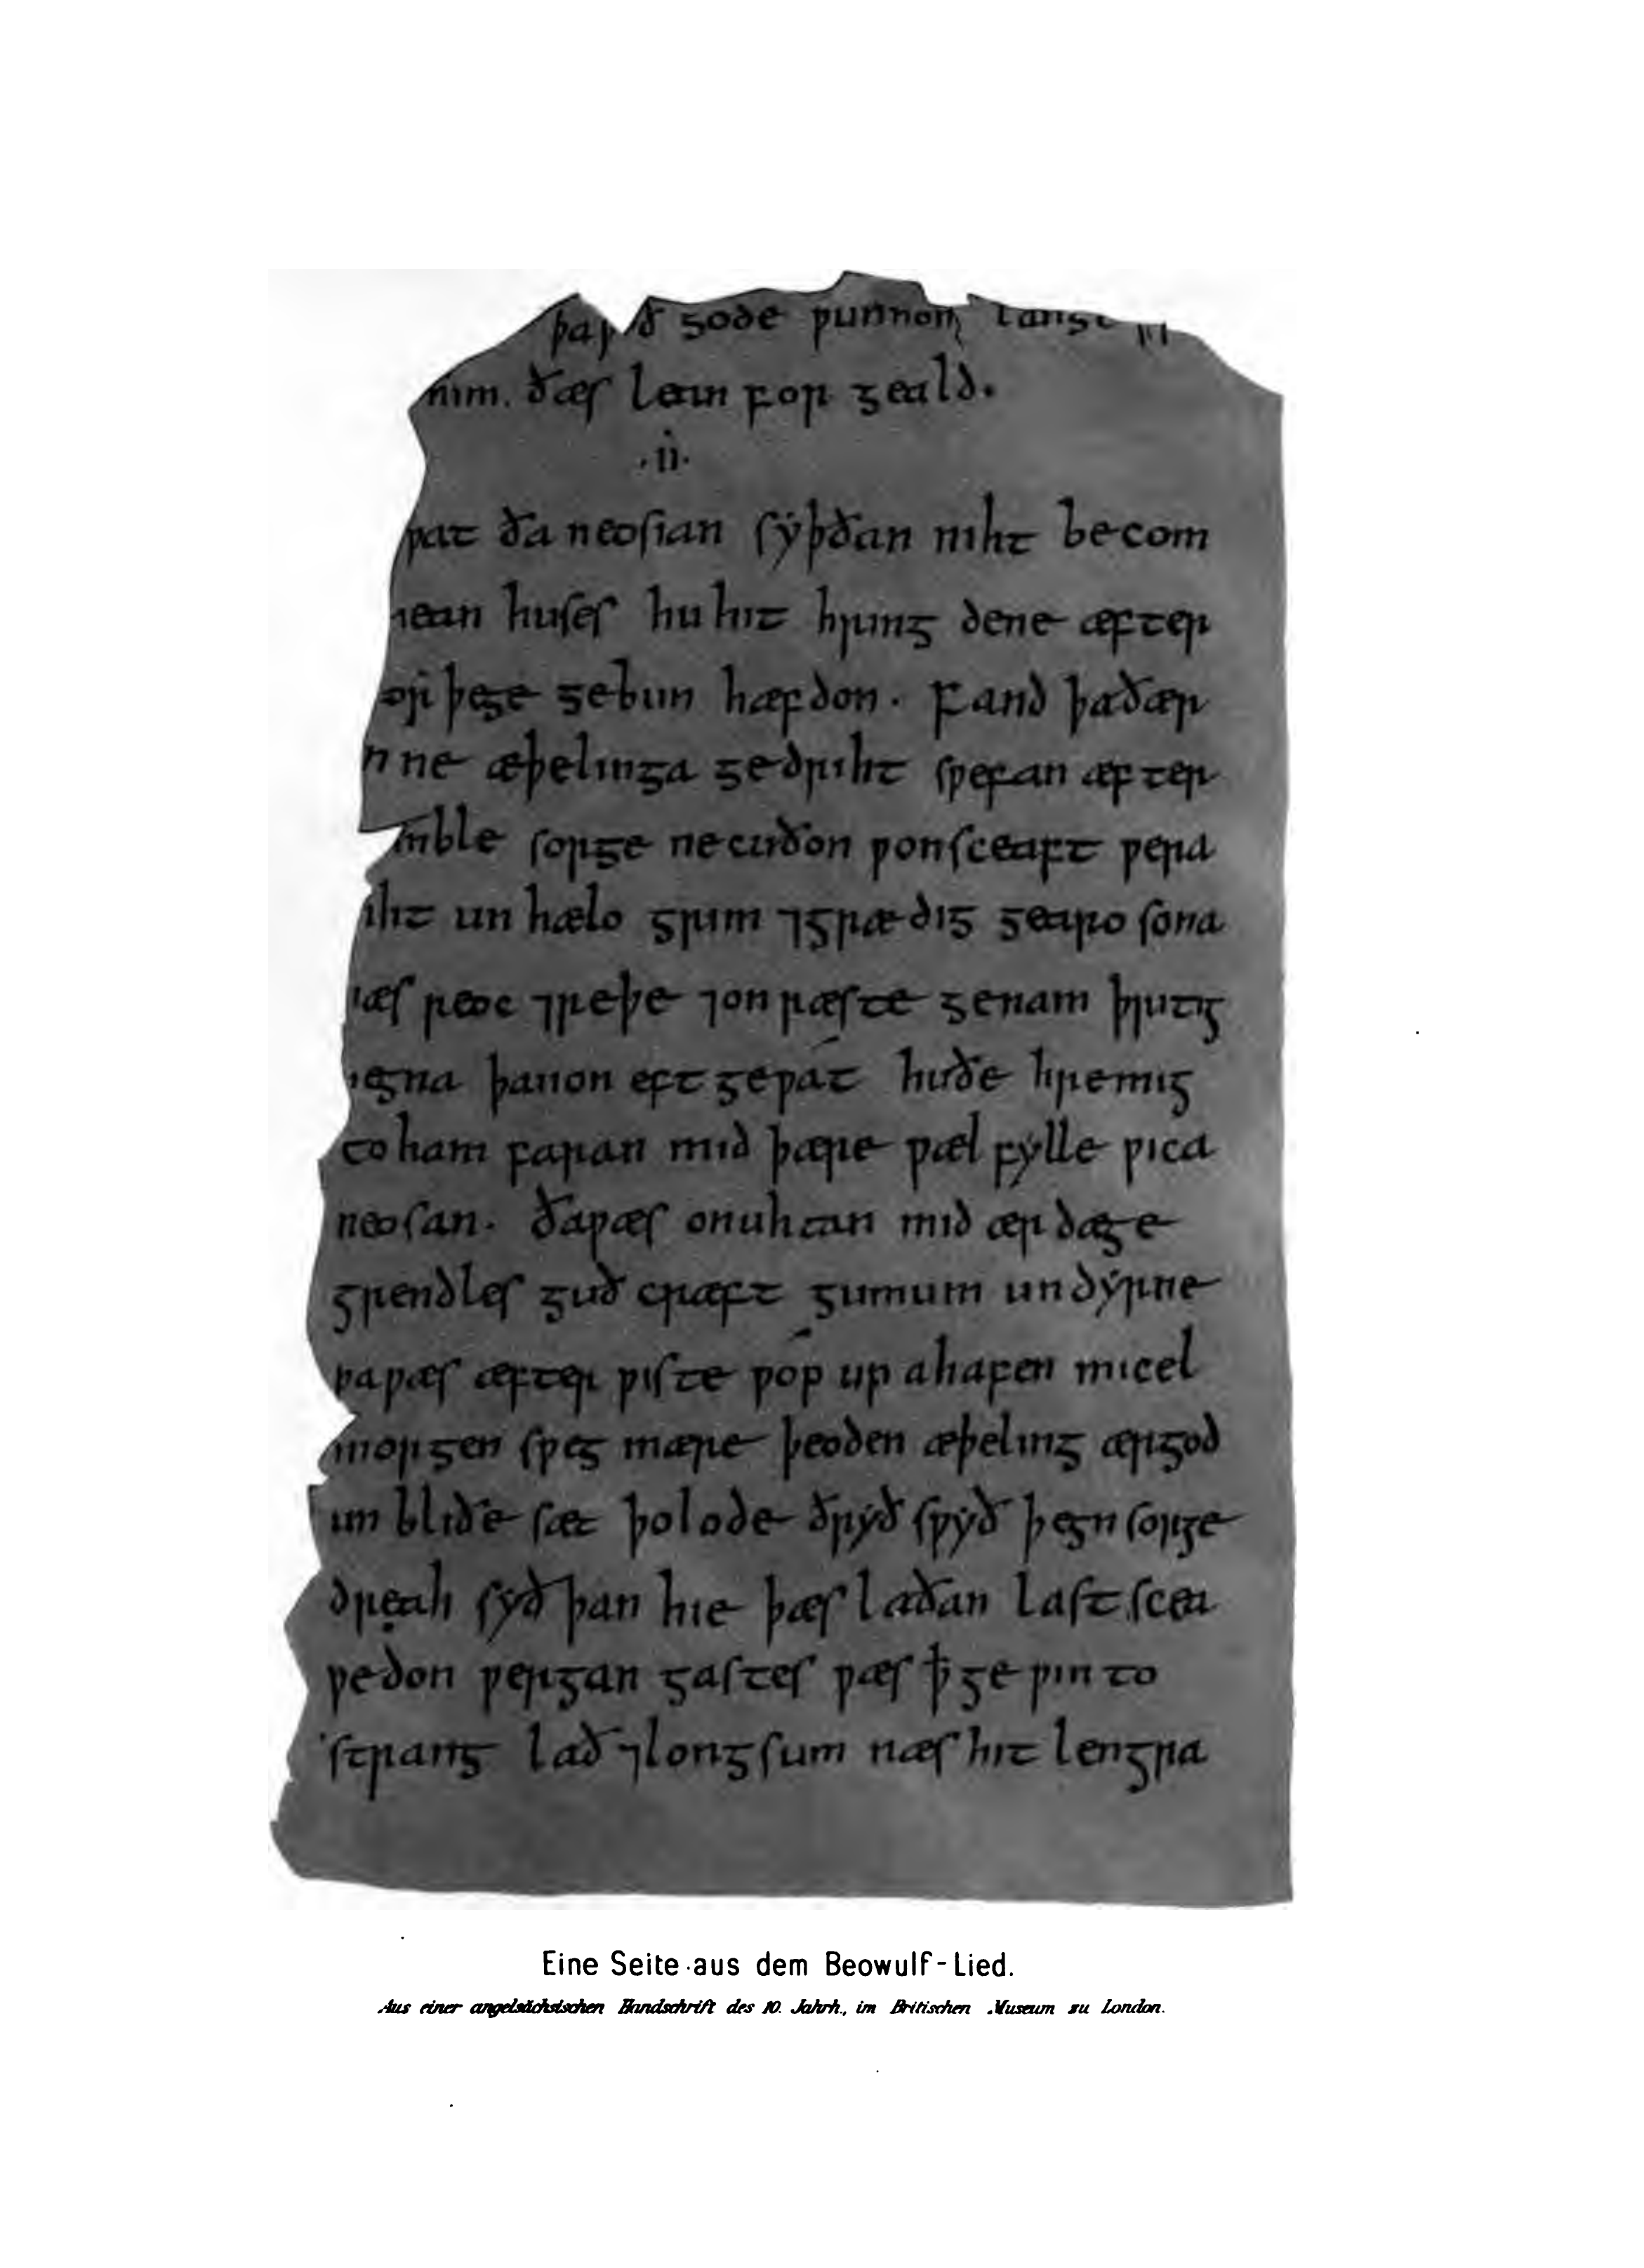 gode ƿunnon lange
him. ðæs lean forgeald.
.ii.
ƿat ða neosian syþðan niht becom
hean huses hu hit hring dene æfter
or þege gebun hæfdon. Fand þa ðær
nne æþelinga gedriht sƿefan æfter
mble sorge ne cuðon ƿonsceaft ƿera
iht un hælo grim ⁊ grædig gearo sona
ƿæs reoc ⁊ reþe ⁊ on ræste genam þritig
egna þanon eft geƿát huðe hremig
to ham faran mid þære ƿæl fylle ƿica
neosan. ða ƿæs on uhtan mid ær dæge
grendles guð cræft gumum undyrne
þa ƿæs æfter ƿiste ƿóp up ahafen micel
morgen sƿeg mære þeoden æþeling ærgod
un bliðe sæt þolode ðryð sƿyð þegn sorge
dreah syðþan hie þæs laðan last scea
ƿedon ƿergan gastes ƿæs ꝥ geƿin to
strang lað ⁊ longsum næs hit lengra
Eine Seite aus dem Beowulf-Lied.
Aus einer angelsächsischen Handschrift des 10. Jahrh., im Britischen Museum zu London.